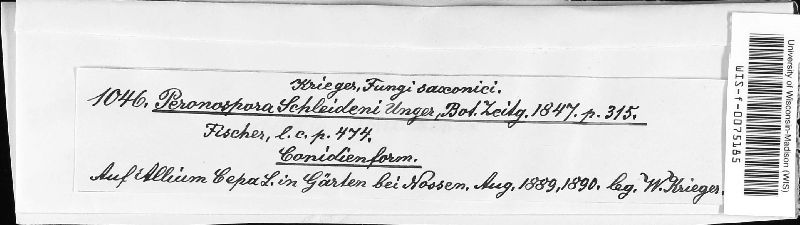 Krieger, Fungi saxonici.
1046. Peronospora Schleideni Unger, Bot. Zeitg. 1847. p. 315.
Fischer, l. c. p. 474.
Conidienform.
Auf Allium Cepa L. in Gärten bei Nossen. Aug. 1889, 1890. leg. W. Krieger.
University of Wisconsin-Madison (WIS)
WIS-f-0075185